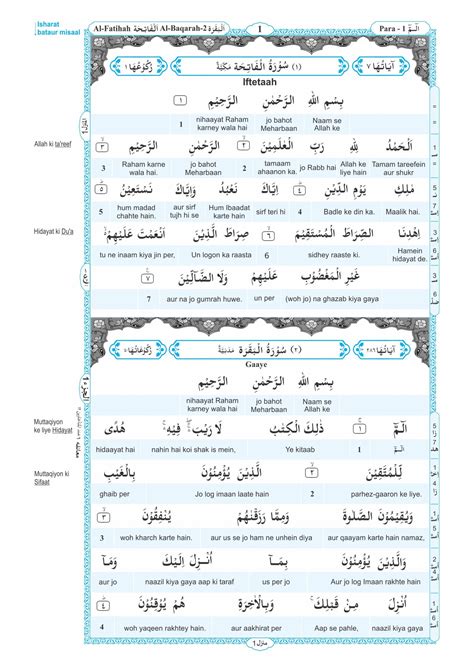 Isharat
bataur misaal
Al-Fatihah اَلْفَاتِحَة Al-Baqarah-2 اَلْبَقَرَة
1
Para - 1 الٓمّٓ
اٰيَاتُهَا ٧ (١) سُوْرَةُ الْفَاتِحَةِ مَكِّيَّةٌ رُكُوْعُهَا ١
Iftetaah
بِسْمِ اللّٰهِ الرَّحْمٰنِ الرَّحِيْمِ ١
Naam se Allah ke jo bahot Meharbaan nihaayat Raham karney wala hai 1
اَلْحَمْدُ لِلّٰهِ رَبِّ الْعٰلَمِيْنَ ٢ الرَّحْمٰنِ الرَّحِيْمِ ٣
Allah ki ta'reef
Tamam tareefein aur shukr Allah ke liye hain jo Rabb hai tamaam ahaanon ka. 2 jo bahot Meharbaan Raham karne wala hai. 3
مٰلِكِ يَوْمِ الدِّيْنِ ٤ اِيَّاكَ نَعْبُدُ وَاِيَّاكَ نَسْتَعِيْنُ ٥
Maalik hai. Badle ke din ka. 4 sirf teri hi Hum Ibaadat karte hain aur sirf tujh hi se hum madad chahte hain. 5
اِهْدِنَا الصِّرَاطَ الْمُسْتَقِيْمَ ٦ صِرَاطَ الَّذِيْنَ اَنْعَمْتَ عَلَيْهِمْ
Hidayat ki Du'a
Hamein hidayat de. sidhey raaste ki. 6 Un logon ka raasta tu ne inaam kiya jin per,
غَيْرِ الْمَغْضُوْبِ عَلَيْهِمْ وَلَا الضَّآلِّيْنَ ٧
(woh jo) na ghazab kiya gaya un per aur na jo gumrah huwe. 7
اٰيَاتُهَا ٢٨٦ (٢) سُوْرَةُ الْبَقَرَةِ مَدَنِيَّةٌ رُكُوْعَاتُهَا ٤٠
Gaaye
بِسْمِ اللّٰهِ الرَّحْمٰنِ الرَّحِيْمِ
Naam se Allah ke jo bahot Meharbaan nihaayat Raham karney wala hai
الٓمّٓ ١ ذٰلِكَ الْكِتٰبُ لَا رَيْبَ فِيْهِ هُدًى
Muttaqiyon ke liye Hidayat
الٓمّٓ 1 Ye kitaab nahin hai koi shak is mein, hidaayat hai
لِّلْمُتَّقِيْنَ ٢ الَّذِيْنَ يُؤْمِنُوْنَ بِالْغَيْبِ
Muttaqiyon ki Sifaat
parhez-gaaron ke liye. 2 Jo log imaan laate hain ghaib per
وَيُقِيْمُوْنَ الصَّلٰوةَ وَمِمَّا رَزَقْنٰهُمْ يُنْفِقُوْنَ ٣
aur qaayam karte hain namaz, aur us se jo ham ne unhein diya woh kharch karte hain. 3
وَالَّذِيْنَ يُؤْمِنُوْنَ بِمَآ اُنْزِلَ اِلَيْكَ وَمَآ
Aur jo log Imaan rakhte hain us per jo naazil kiya gaya aap ki taraf aur jo
اُنْزِلَ مِنْ قَبْلِكَ وَبِالْاٰخِرَةِ هُمْ يُوْقِنُوْنَ ٤
naazil kiya gaya Aap se pahle, aur aakhirat per woh yaqeen rakhtey hain. 4
منزل 1